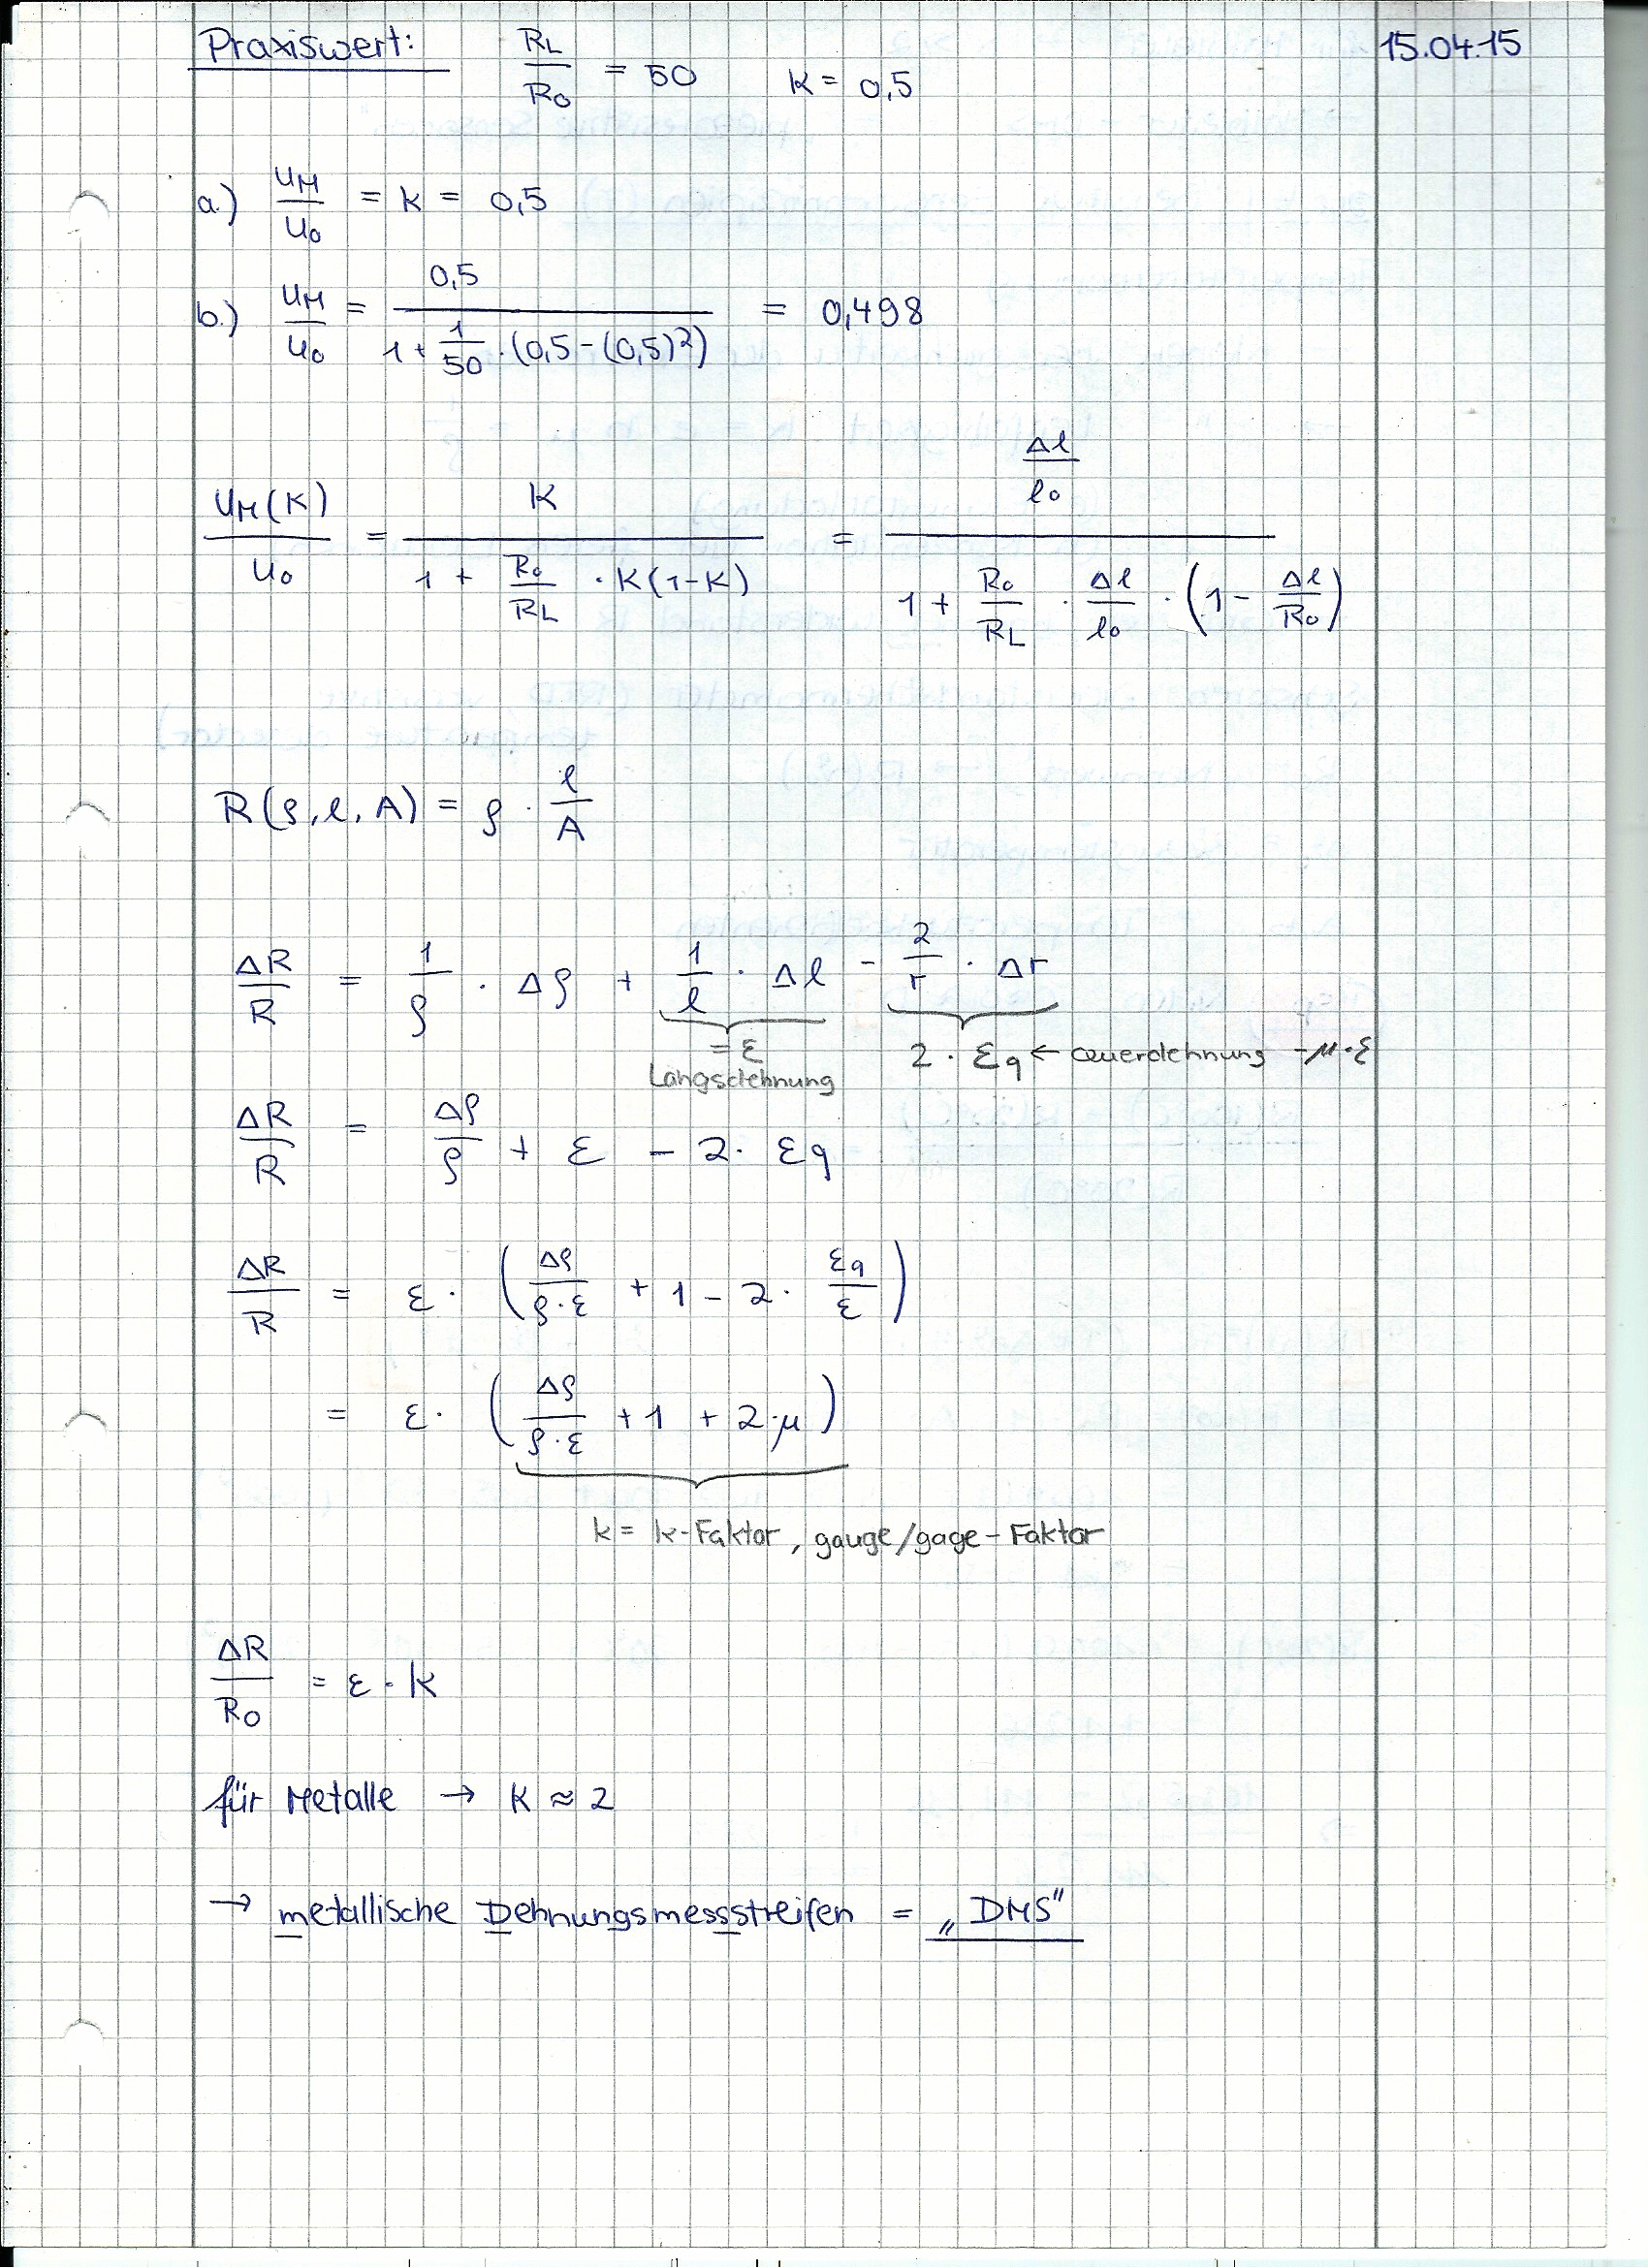 Praxiswert: R_L/R_0 = 50 K = 0,5 15.04.15
a.) U_M/U_0 = K = 0,5
b.) U_M/U_0 = 0,5 / (1 + 1/50 · (0,5 - (0,5)²)) = 0,498
U_M(K)/U_0 = K / (1 + R_0/R_L · K(1-K)) = (Δl/l_0) / (1 + R_0/R_L · Δl/l_0 · (1 - Δl/R_0))
R(ρ, l, A) = ρ · l/A
ΔR/R = 1/ρ · Δρ + 1/l · Δl - 2/r · Δr
= ε 2 · ε_q ← Querdehnung -μ·ε
Längsdehnung
ΔR/R = Δρ/ρ + ε - 2 · ε_q
ΔR/R = ε · (Δρ/(ρ·ε) + 1 - 2 · ε_q/ε)
= ε · (Δρ/(ρ·ε) + 1 + 2·μ)
k = k-Faktor, gauge/gage-Faktor
ΔR/R_0 = ε · k
für Metalle → K ≈ 2
→ metallische Dehnungsmessstreifen = „DMS"